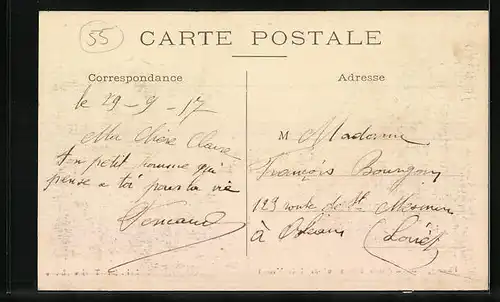 55
CARTE POSTALE
Correspondance
Adresse
le 29-9-17
Ma Chère Claire
ton petit homme qui
pense a toi pour la vie
Fernand
M Madame
François Bourgoin
123 route de St Mesmin
à Orléans
Loiret